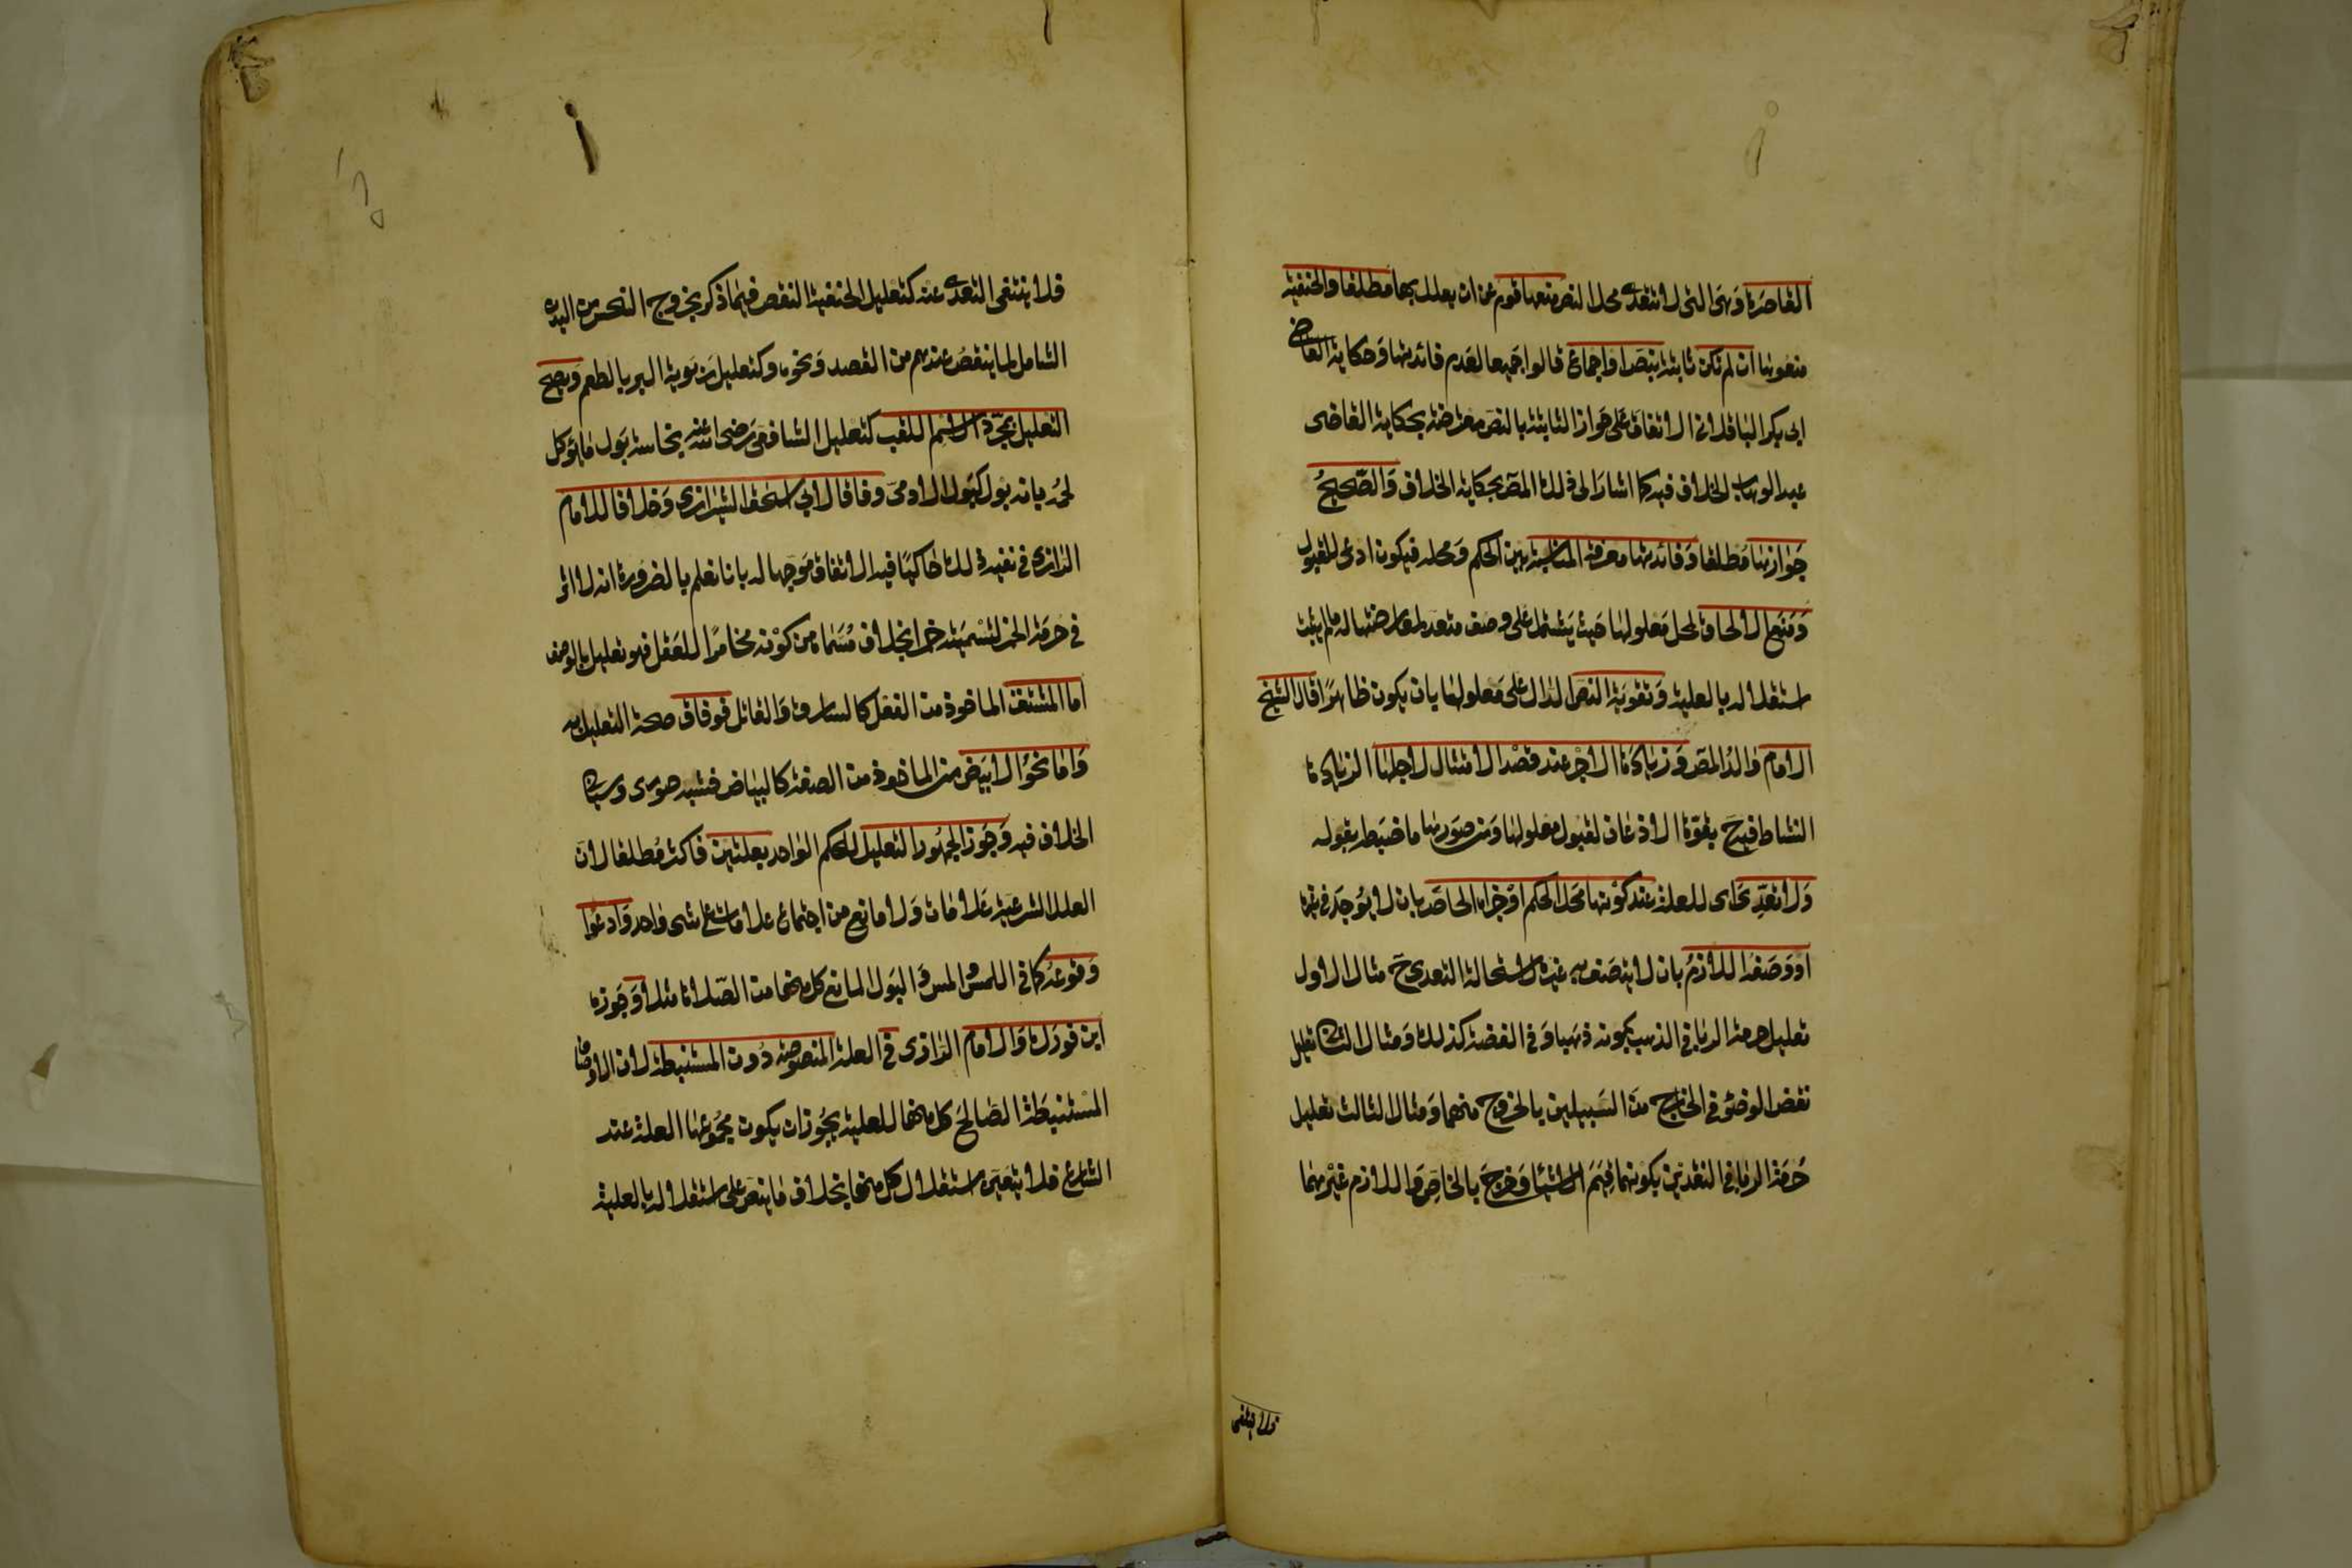 القاصرة وهى التى لا تتعدى محل النص منعها قوم عن ان يعلل بها مطلقا والحنفية
منعوها ان لم تكن ثابتة بنص او اجماع قالوا جميعا لعدم فائدتها وحكاية القاضى
ابى بكر الباقلانى الاتفاق على جواز الثابتة بالنص معترضة بحكاية القاضى
عبد الوهاب الخلاف فيه كما اشار الى ذلك المص بحكاية الخلاف والصحيح
جوازها مطلقا وفائدتها معرفة المناسبة بين الحكم ومحله فيكون ادعى للقبول
ومنع الالحاق بمحل معلولها حيث يشتمل على وصف متعد لمعارضتها له ما لم يثبت
استقلاله بالعلية وتقوية النص الدال على معلولها بان يكون ظاهرا قال الشيخ
الامام والد المص وزيادة الاجر عند قصد الامتثال لاجلها الزيادة
النشاط فيه ح بقوة الاذعان لقبول معلولها ومن صورها ما ضبطه بقوله
ولا تعدى اى للعلة عند كونها محل الحكم او جزاه الخاص بان لا يوجد فى غيره
او وصفه اللازم بان لا يتصف به غيره لاستحالة التعدى ح مثال الاول
تعليل حرمة الربا فى الذهب بكونه ذهبا وفى الفضة كذلك ومثال الثانى تعليل
نقض الوضؤ فى الخارج من السبيلين بالخروج منهما ومثال الثالث تعليل
حرمة الربا فى النقدين بكونهما قيم الاشيا وخرج بالخاص واللازم غيرهما
فلا ينتفى
فلا ينتفى التعدى عنه كتعليل الحنفية النقض فيما ذكر بخروج النجس من البدن
الشامل لما ينقض عندهم من الفصد ونحوه وكتعليل ربوية البر بالطعم ويصح
التعليل بمجرد الاسم اللقب كتعليل الشافعى رضى الله عنه نجاسة بول ما يؤكل
لحمه بانه بول كبول الادمى وفاقا لابى اسحق الشيرازى وخلافا للامام
الرازى فى نفيه ذلك حاكيا فيه الاتفاق موجها له بانا نعلم بالضرورة انه لا اثر
فى حرمة الخمر لتسميته خمرا بخلاف مسماه من كونه مخامرا للعقل فهو تعليل بالوصف
اما المشتق الماخوذ من الفعل كالسارق والقاتل فوفاق صحة التعليل به
واما نحو الابيض من الماخوذ من الصفة كالبياض فشبه صورى وسياتى
الخلاف فيه وجوز الجمهور التعليل للحكم الواحد بعلتين فاكثر مطلقا لان
العلل الشرعية علامات ولا مانع من اجتماع علامات على شى واحد وادعوا
وقوعه كما فى اللمس والمس والبول المانع كل منها من الصلاة مثلا وجوزه
ابن فورك والامام الرازى فى العلة المنصوصة دون المستنبطة لان الاوصاف
المستنبطة الصالح كل منها للعلية يجوز ان يكون مجموعها العلة عند
الشارع فلا يتعين استقلال كل منها بخلاف ما نص على استقلاله بالعلية